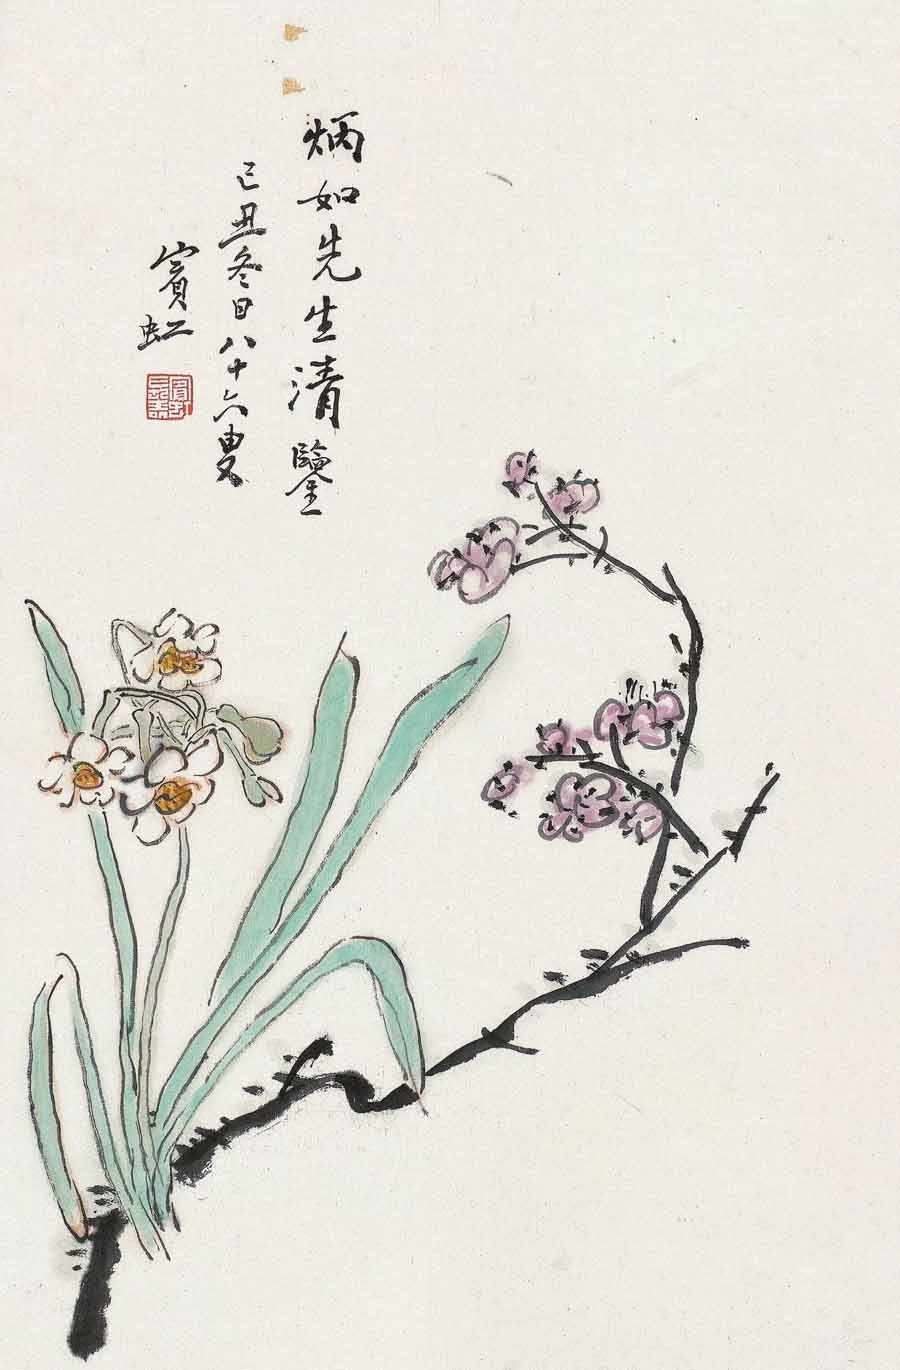 炳如先生清鑒
己丑冬日八十六叟
賓虹